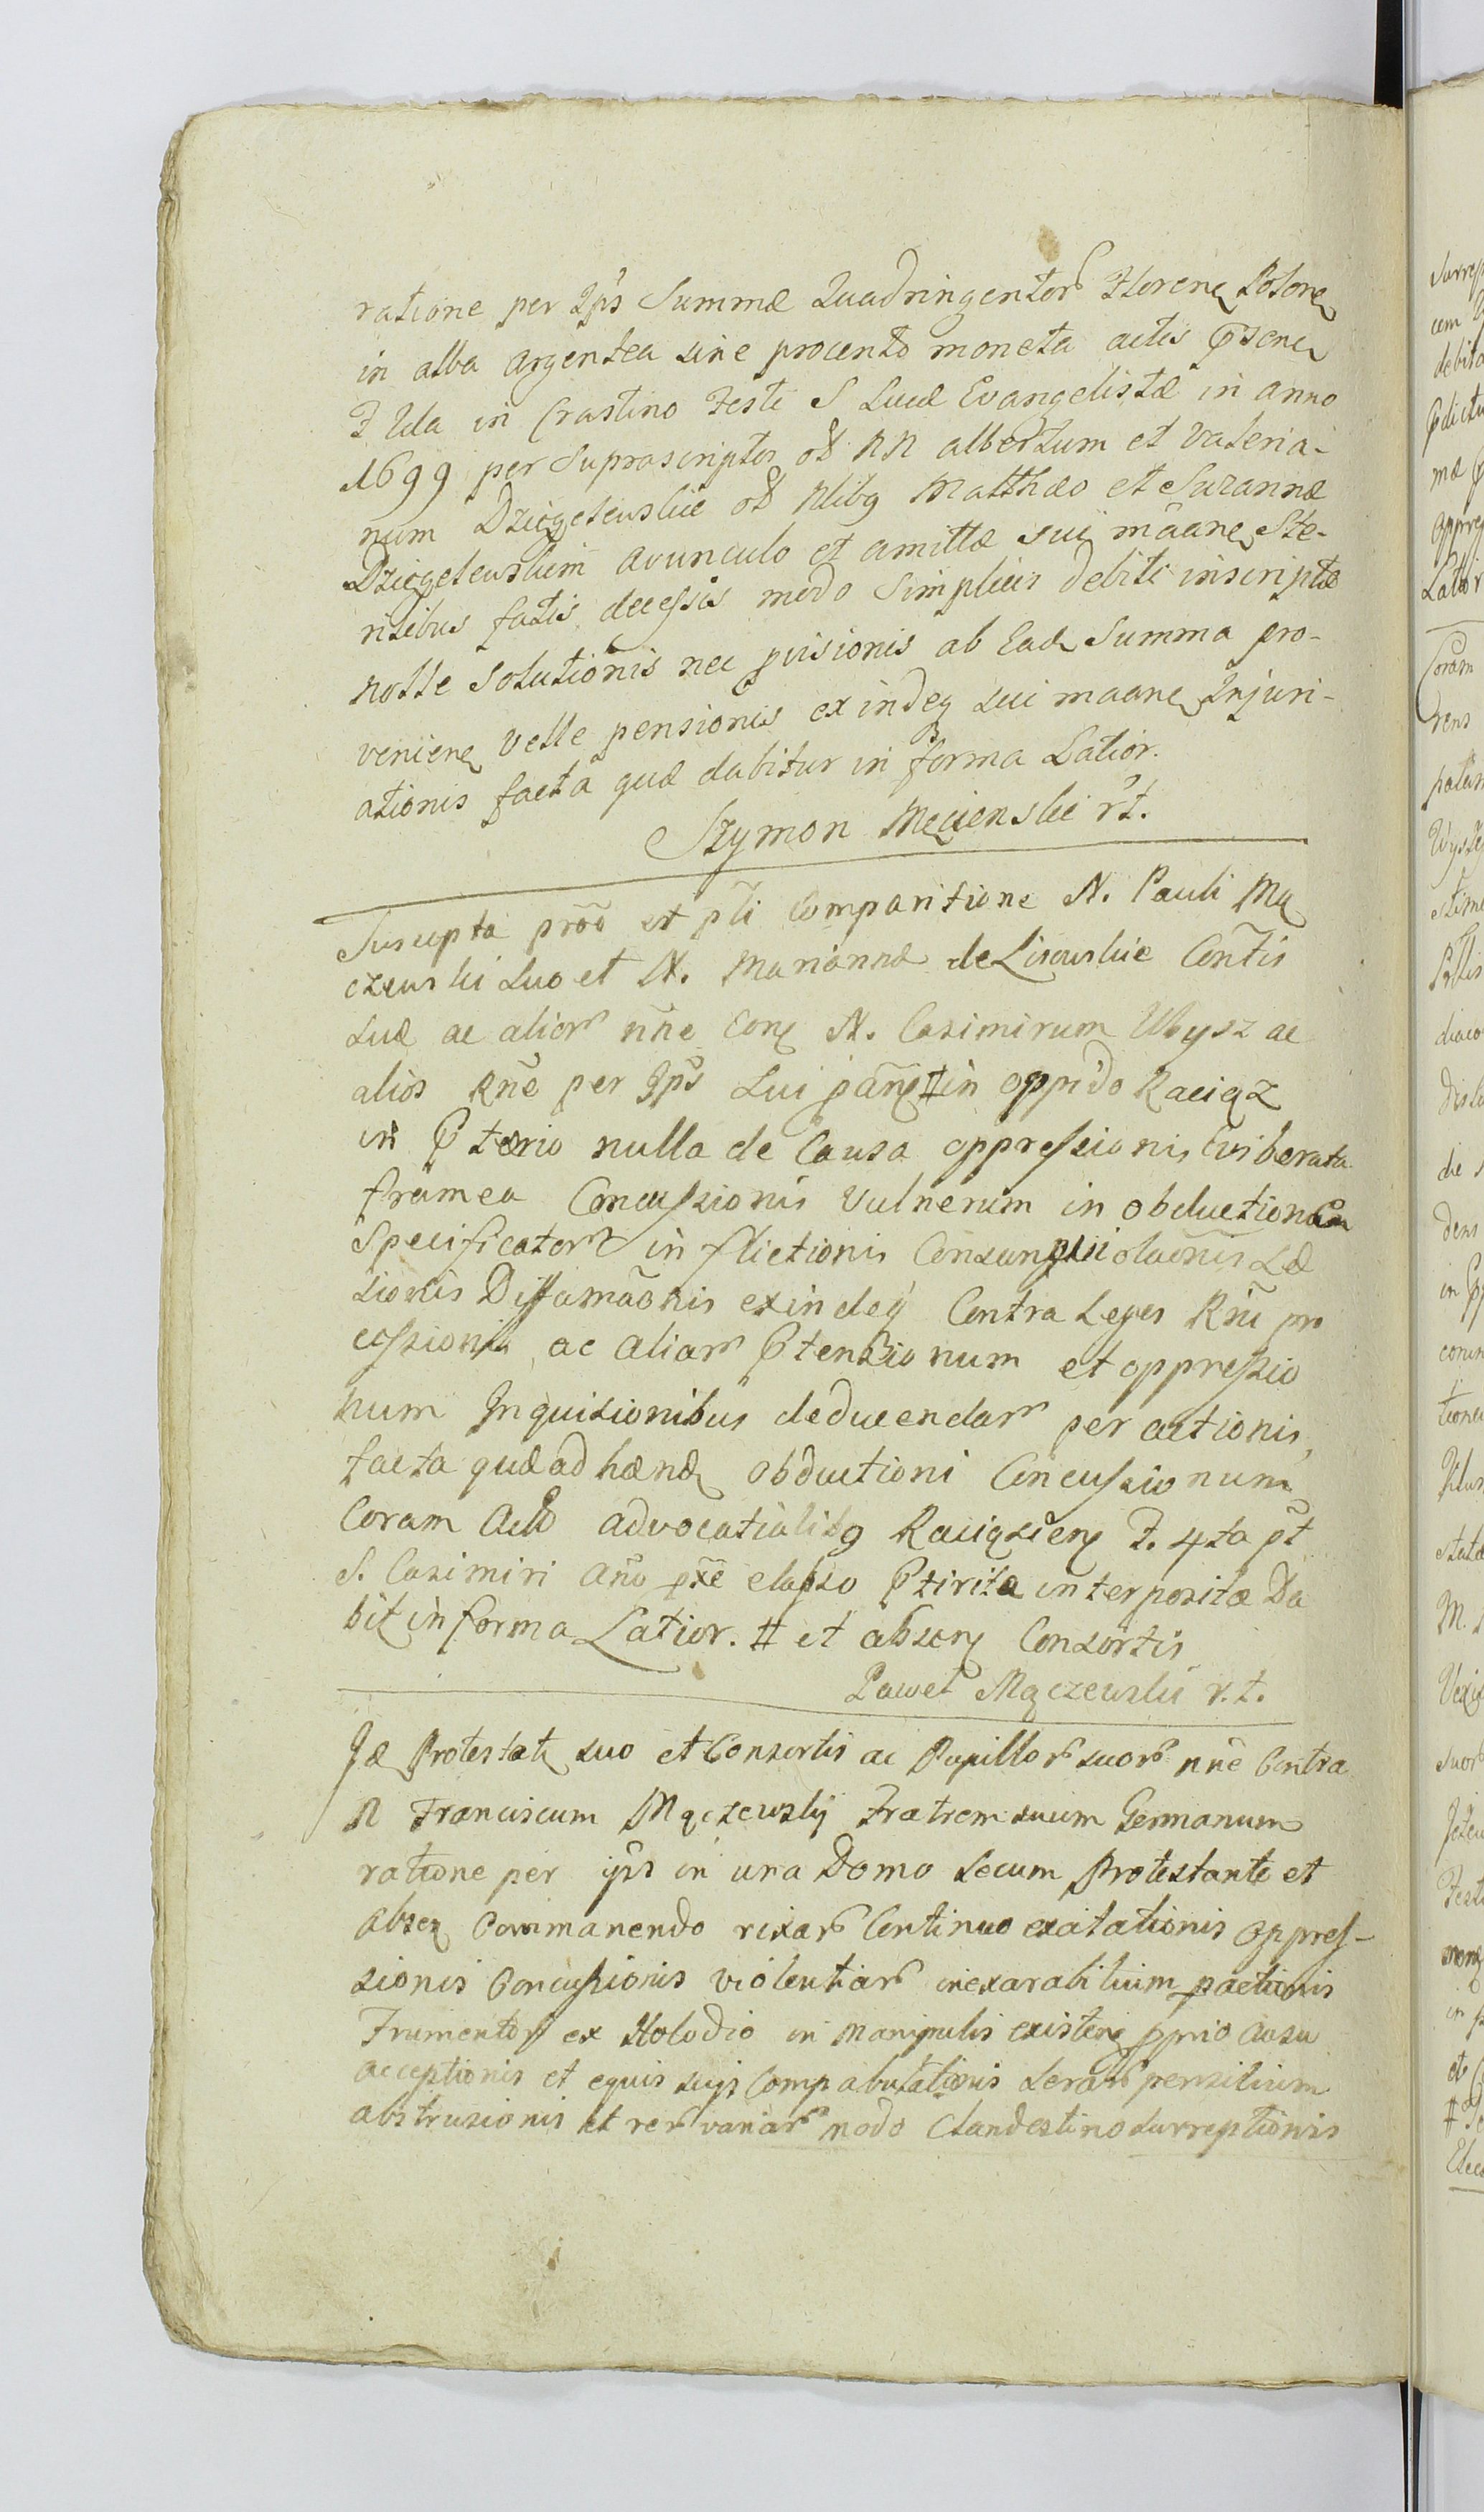 ratione per Ip̃s Summæ Quadringentor Floreneɋ Poloneɋ
in alba argentea sine procento moneta actis p̃seneɋ
F IIda in Crastino Festi S Lucæ Evangelistæ in anno
1699 per Suprascriptos ol NN albertum et Valeria-
num Dzięgelewskie ol Nlibq Matthæo et Suzannæ
Dzięgelewskim avunculo et amittæ suiɋ māane Ste-
rilibus fatis decessis modo Simplicis debiti inscriptæ
nolle solutionis nec p̃visionis ab Eadɋ Summa pro-
venieneɋ velle pensionis exindeq sui maaneɋ Injuri-
ationis facta quæ dabitur in forma Latior.
Szymon Męcienski rt.
Suscepta prõõ et p̃ti Comparitione N. Pauli Mą
czewski suo et N. Mariannæ de Lisowskie Coñtis
suæ ac alior ñne Conɋ N. Casimirum Wysz ac
alios Rñe per Ip̃s sui p̃añɋ # in oppido Raciąz
in p̃torio nulla de Causa oppressionis Eviberata
framea Concussionis vulnerum in obductione
Specificator inflictionis Consangviolaõnis Læ
sionis Diffamaõnis exindeq Contra Leges Rñi pro
cessionis ac aliar p̃tensionum et oppressio
num Inquisionibus deducendar per actionis
facta quæ adhænɋ obductioni Concussionum
Coram Actis advocatialibq Raciązieneɋ F. 4ta p̃t
S. Casimiri año p̃te elapso p̃tirita interpositæ Da
bit in forma Latior. # et abseneɋ Consortis
Paweł Mączewski r.t.
Iɋ Protestatɋ suo et Consortis ac Pupillor suor nñe Contra
N Franciscum Mączewsky Fratrem suum Germanum
ratione per ip̃s in una Domo secum Protestante et
absenɋ Commanendo rixar Continuo excitationis oppres-
sionis Concussionis violentiar inexarabilium pactionis
Frumentor ex Holodio in manipulis existenɋ pprio Ausu
acceptionis et equis suis Compabulationis serar pensilium
abstrusionis et rer variar modo Clandestino surreptionis